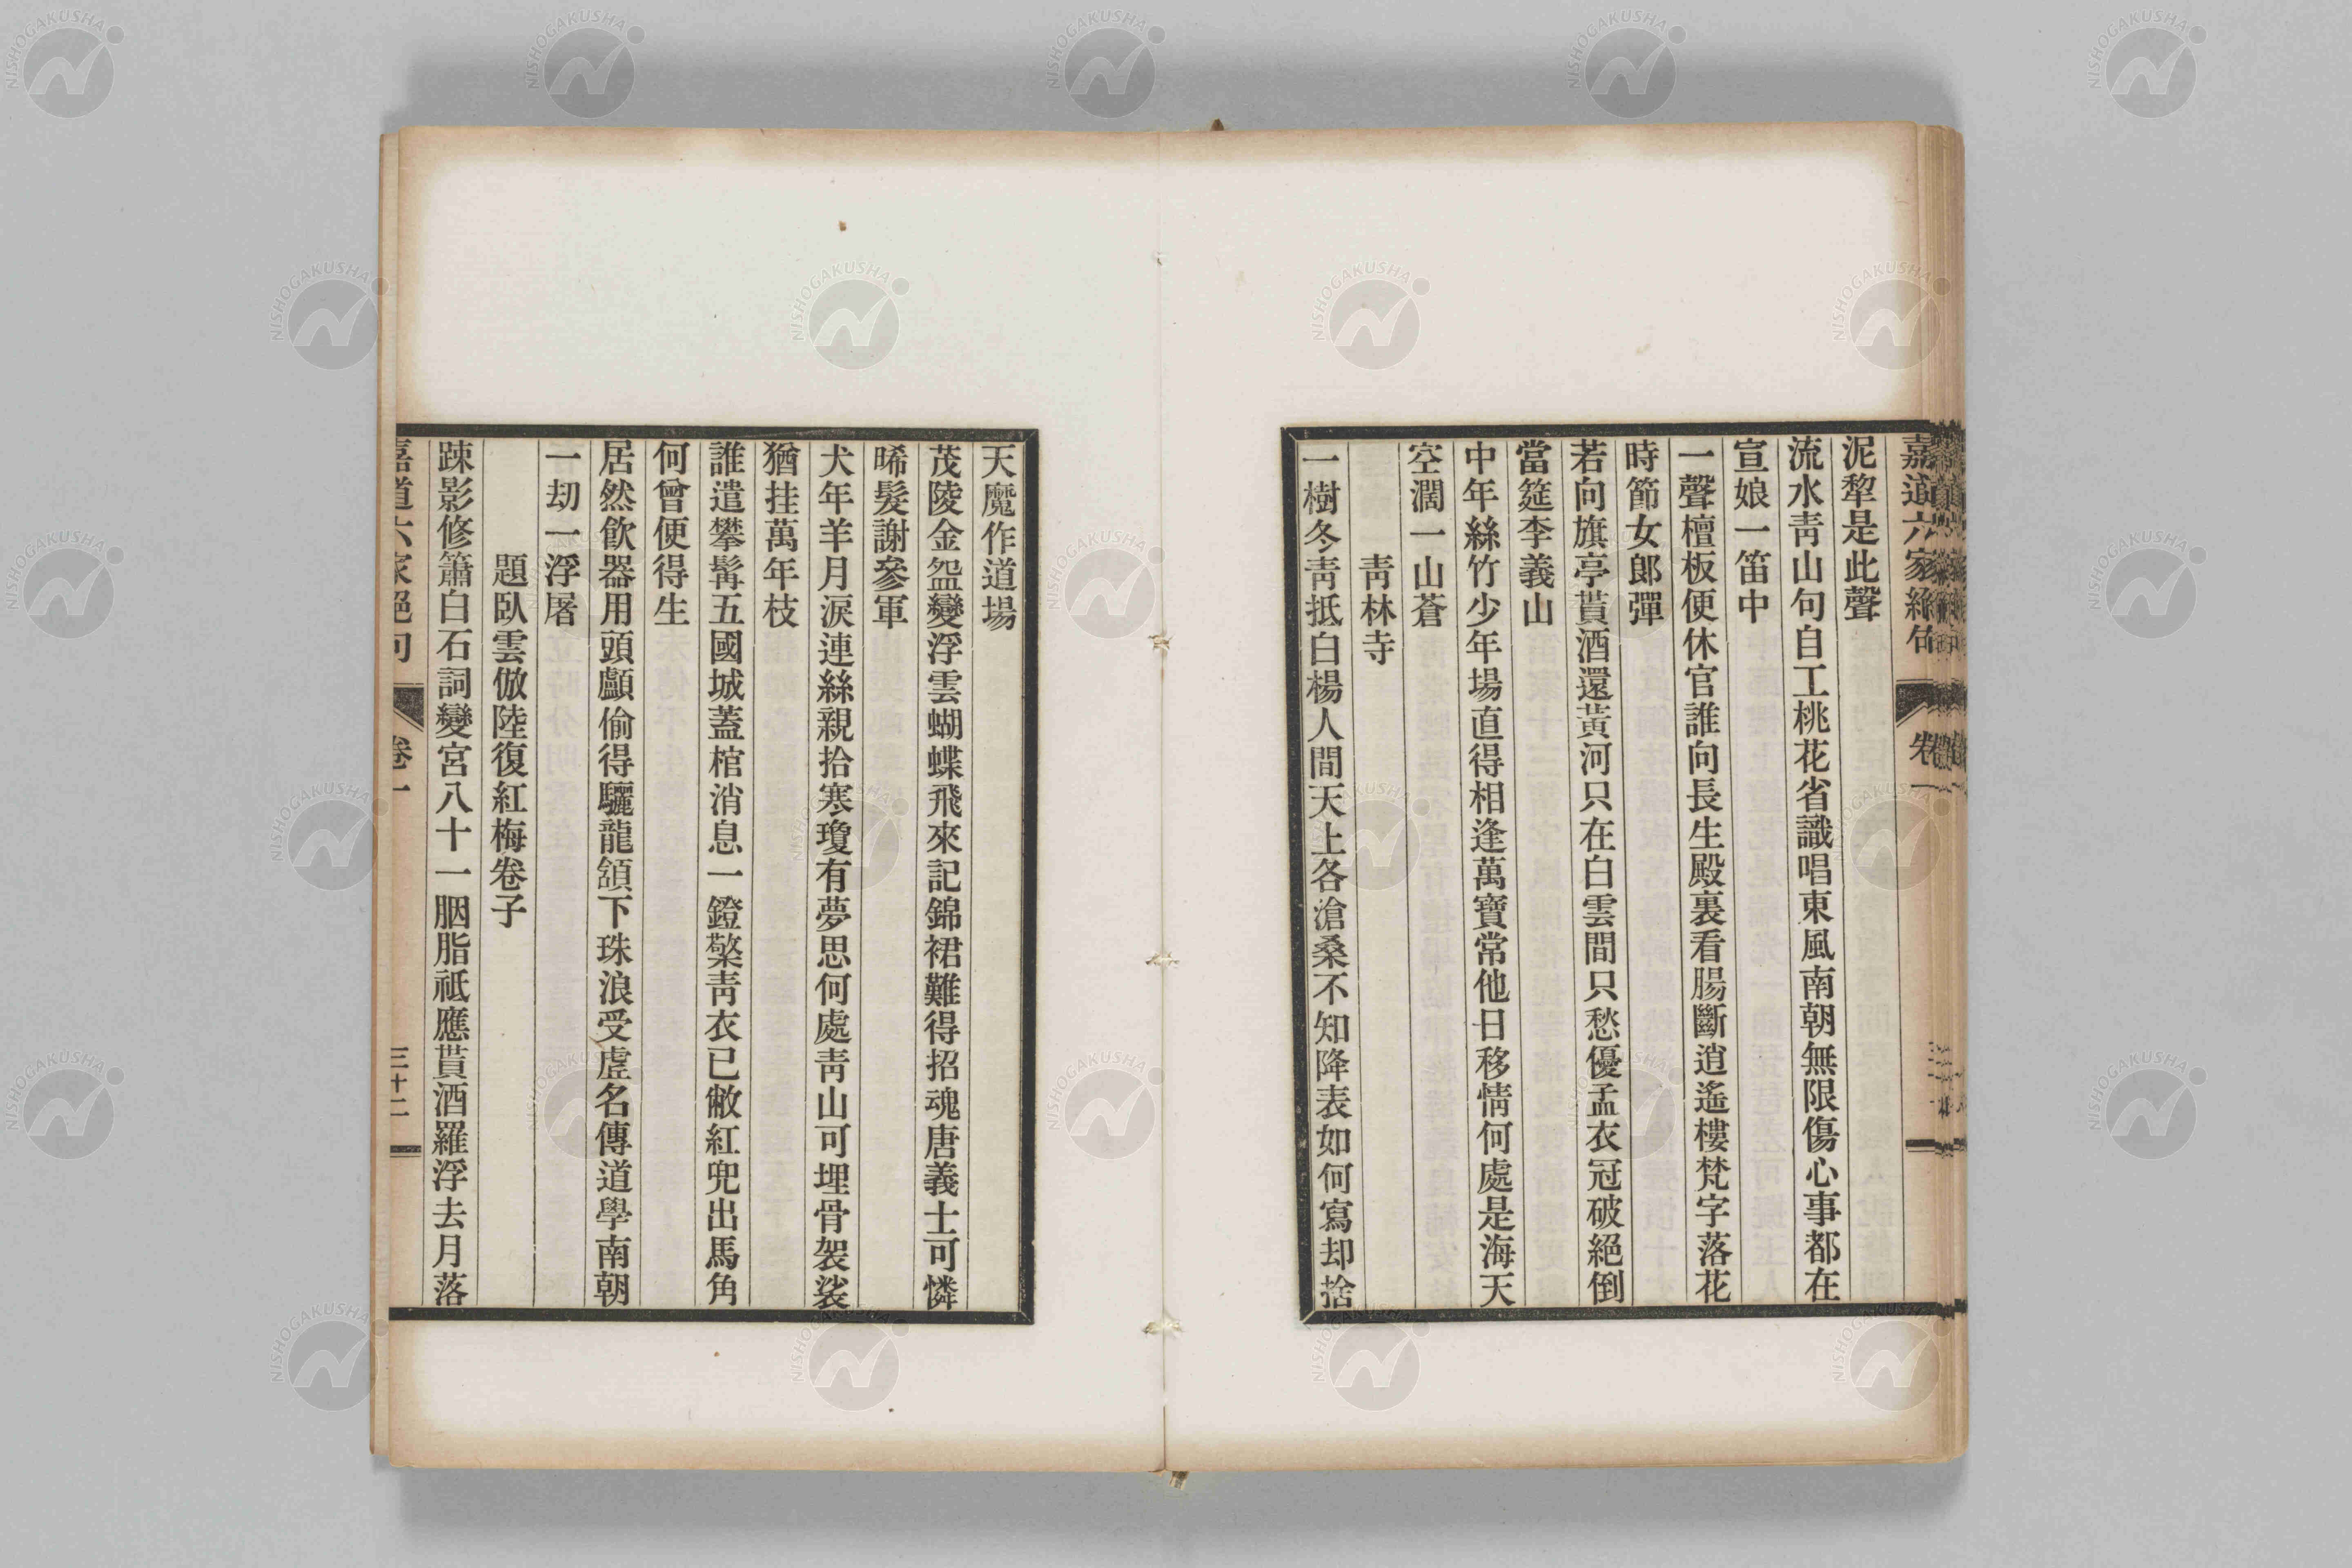 嘉道六家絕句
卷一
泥犂是此聲
流水靑山句自工桃花省識唱東風南朝無限傷心事都在
宣娘一笛中
一聲檀板便休官誰向長生殿裏看腸斷逍遙樓梵字落花
時節女郞彈
若向旗亭貰酒還黃河只在白雲間只愁優孟衣冠破絕倒
當筵李義山
中年絲竹少年場直得相逢萬寶常他日移情何處是海天
空濶一山蒼
靑林寺
一樹冬靑抵白楊人間天上各滄桑不知降表如何寫却捨
天魔作道場
茂陵金盌變浮雲蝴蝶飛來記錦裙難得招魂唐義士可憐
晞髮謝參軍
犬年羊月淚連絲親拾寒瓊有夢思何處靑山可埋骨袈裟
猶挂萬年枝
誰遣攀髯五國城蓋棺消息一鐙檠靑衣已敝紅兜出馬角
何曾便得生
居然飮器用頭顱偷得驪龍頷下珠浪受虛名傳道學南朝
一刧一浮屠
題臥雲倣陸復紅梅卷子
踈影修簫白石詞變宮八十一胭脂祗應貰酒羅浮去月落
嘉道六家絕句
卷一
三十二
NISHOGAKUSHA